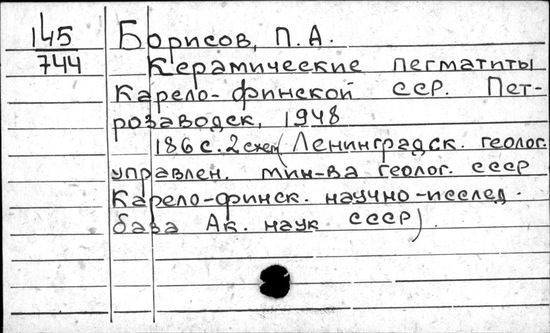 145
744
Борисов, П. А.
Керамические пегматиты
Карело-финской ССР. Пет-
розаводск, 1948
186 с. 2 схем (Ленинградск. геолог.
управлен. мин-ва геолог. СССР
Карело-финск. научно-исслед.
база Ак. наук СССР).